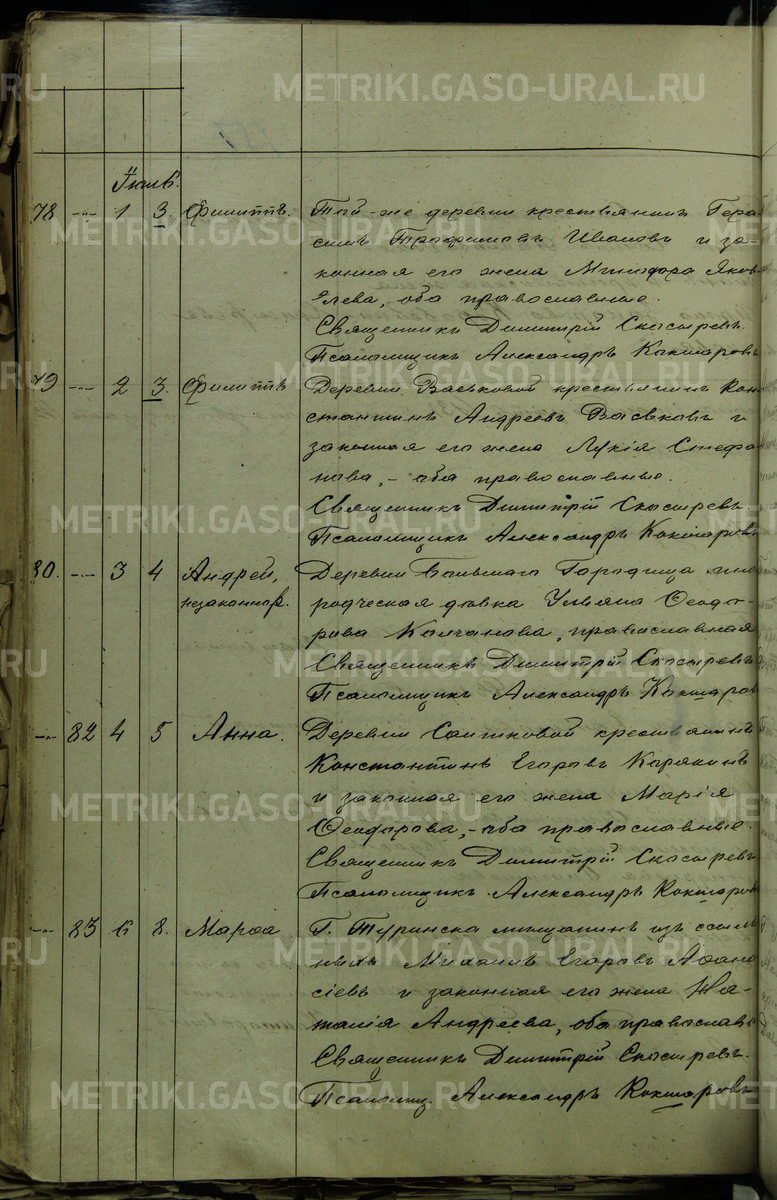 METRIKI.GASO-URAL.RU
Іюль.
78 -"- 1 3. Филиппъ. Той-же деревни крестьянинъ Гера-
симъ Трофимовъ Ивановъ и за-
конная его жена Минодора Яков-
лева, оба православные.
Священникъ Димитрій Скосыревъ.
Псаломщикъ Александръ Кокшаровъ
79 -"- 2 3. Филиппъ Деревни Васьковой крестьянинъ Кон-
стантинъ Андреевъ Васьковъ и
законная его жена Лукія Стефа-
нова, - оба православные.
Священникъ Димитрій Скосыревъ.
Псаломщикъ Александръ Кокшаровъ
80. -"- 3 4 Андрей, Деревни Большаго Городища ино-
незаконнор. родческая дѣвка Ульяна Ѳеодо-
рова Колчанова, православная
Священникъ Димитрій Скосыревъ
Псаломщикъ Александръ Кокшаров
-"- 82 4 5 Анна. Деревни Саитковой крестьянинъ
Константинъ Егоровъ Корякинъ
и законная его жена Марія
Ѳеодорова, - оба православные.
Священникъ Димитрій Скосыревъ
Псаломщикъ Александръ Кокшаров
-"- 83 6 8. Марѳа Г. Туринска мѣщанинъ изъ ссыль-
ныхъ Михаилъ Егоровъ Аѳана-
сіевъ и законная его жена На-
талія Андреева, оба православн
Священникъ Димитрій Скосыревъ.
Псаломщ. Александръ Кокшаровъ